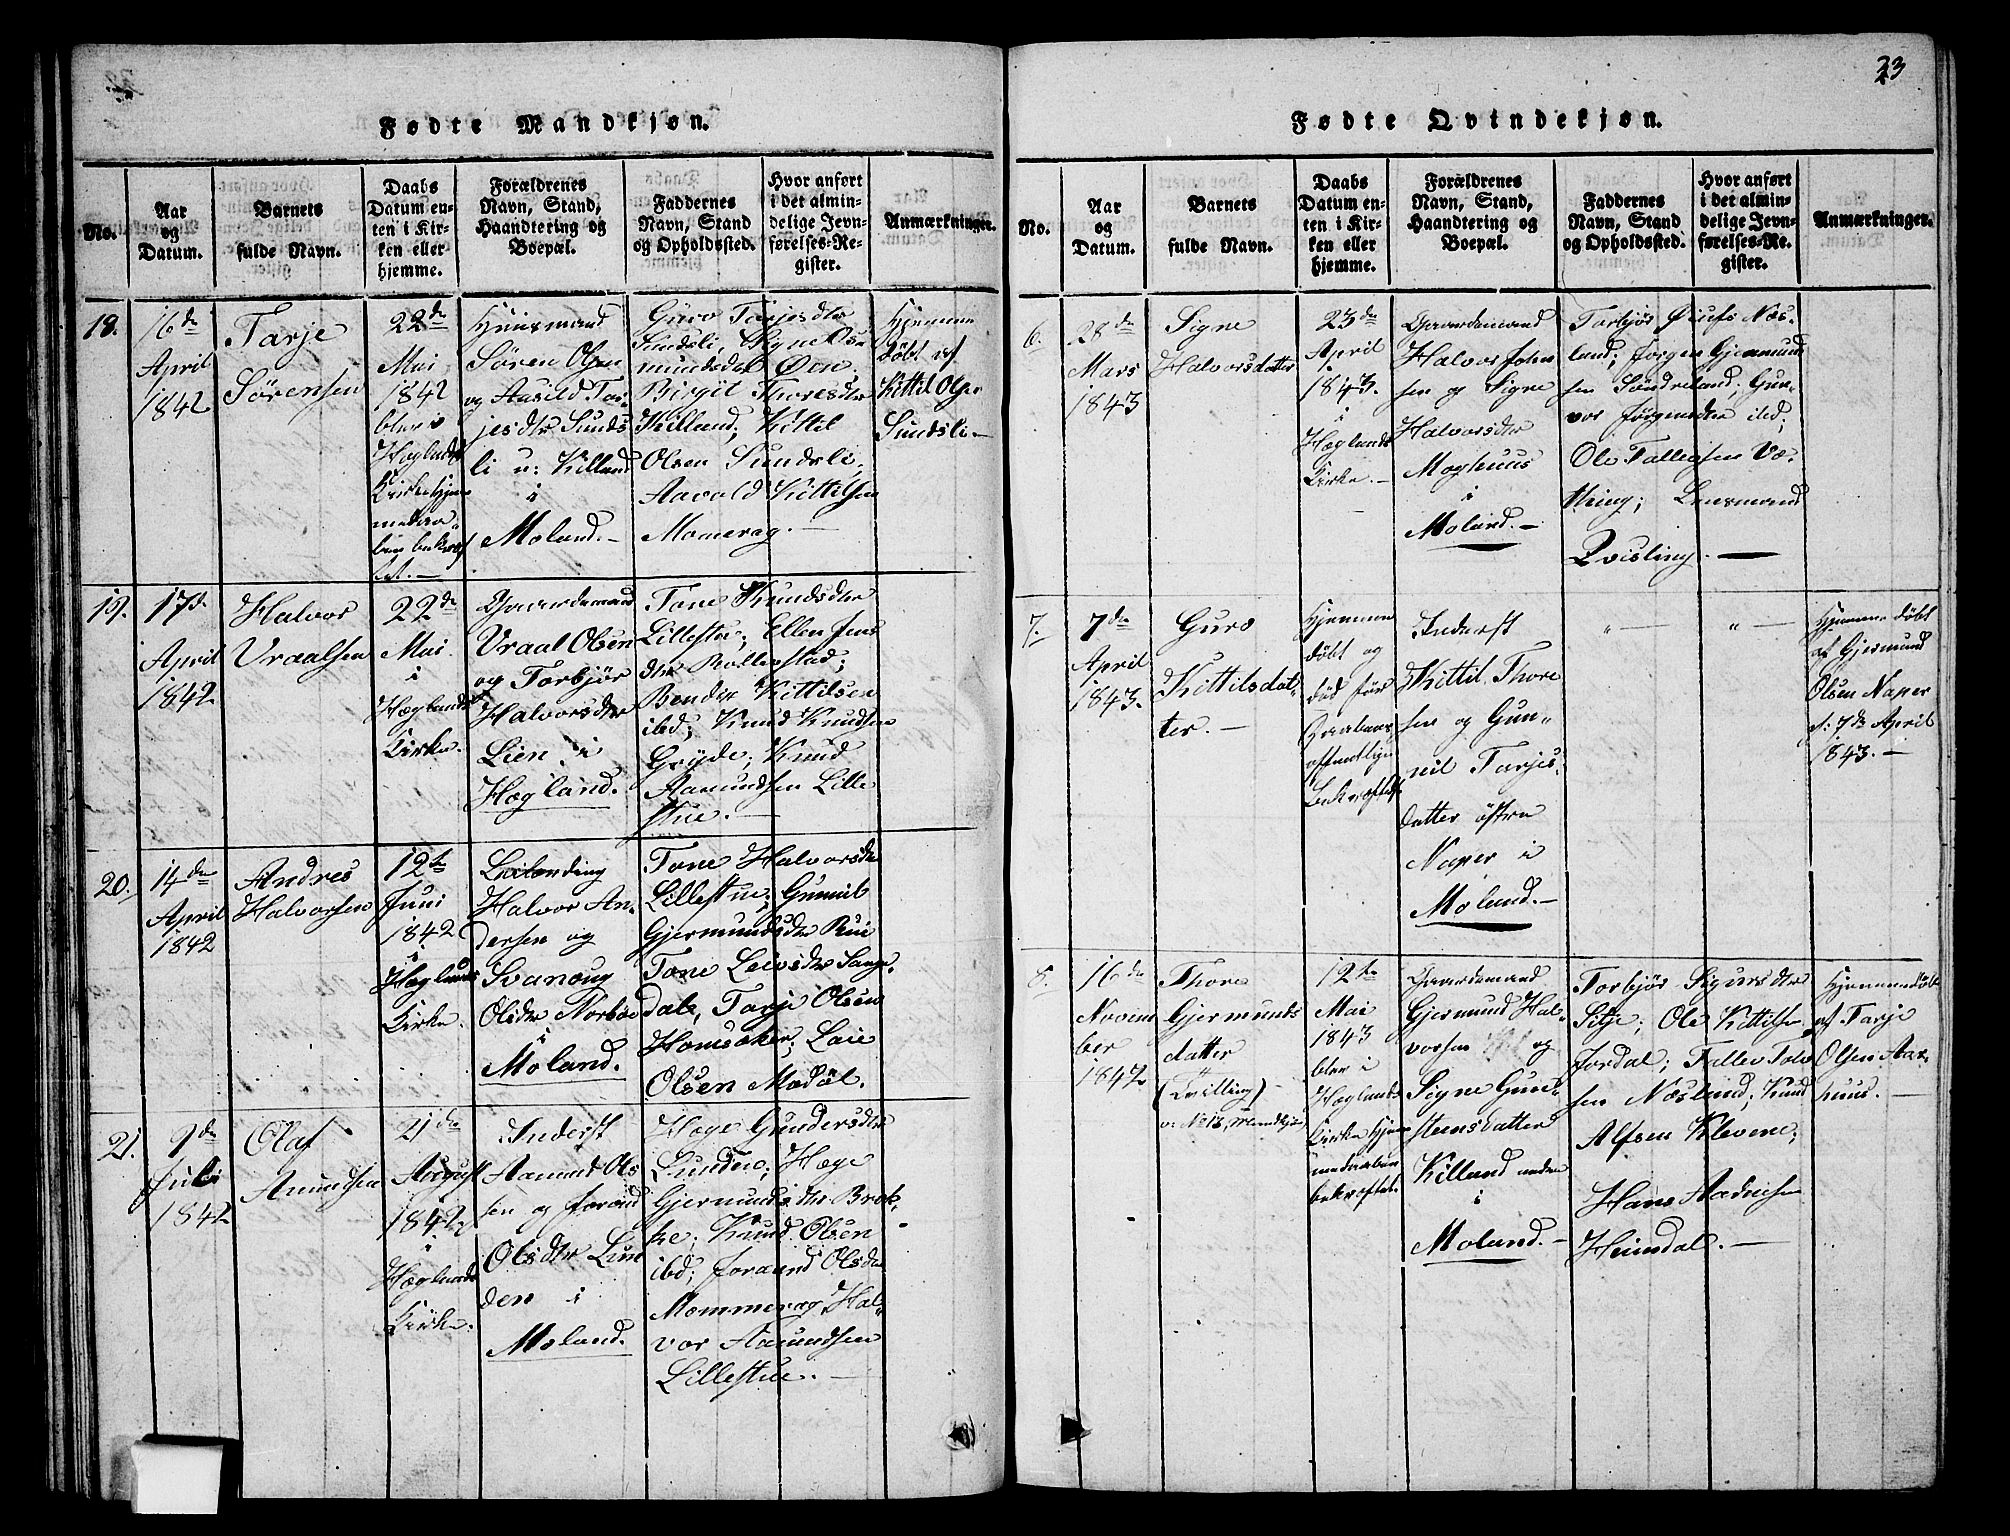 33
Fødte Mandkjøn.
No.
Aar
og
Datum.
Barnets
fulde Navn.
Daabs
Datum en-
ten i Kir-
ken eller
hjemme.
Forældrenes
Navn, Stand,
Haandtering og
Boepæl.
Faddernes
Navn, Stand
og Opholdssted.
Hvor anført
i det almin-
delige Jevn-
førelses-Re-
gister.
Anmærkninger.
18.
16de
April
1842
Tarje
Sørensen
22de
Mai
1842
blev i
Heglands
Kirke Hjem
medaa-
ben bekræf
tet.—
Huusmand
Søren Olsen
og Aasild Tar-
jesdtr Sunds
li u: Killand
i
Moland.—
Guro Tarjesdtr
Sundsli, Signe Os-
mundsdtr Øen.
Birgit Thoresdtr
Killand; Kittil
Olsen Sundsli,
Aavald Kittilsen
Momerag.—
Hjemme
døbt af
Kittil Olsen
Sundsli.—
19.
17de
April
1842
Halvor
Vraalsen
22de
Mai
i
Heglands
Kirke.
Gaardemand
Vraal Olsen
og Torbjør
Halvorsdtr
Lien i
Hegland.
Tone Knudsdtr
Lillestue; Ellen Jens
dtr Rollerstad;
Bendix Kittilsen
ibd; Knud Knudsen
Gryde; Knud
Aamundsen Lille
stue.—
20.
14de
April
1842
Andres
Halvorsen
12te
Juni
1842
i
Heglands
Kirke.
Leilending
Halvor An-
dersen og
Svanoug
Olsdtr Norbøe
i
Moland.
Tone Halvorsdtr
Lillestue; Gunnil
Gjermundsdtr Rui
Tone Leivsdtr Lange-
dal, Tarje Olsen
Homsaker; Laie
Olsen Modøl.
21.
9de
Juli
1842
Olaf
Amundsen
21de
August
1842
i
Heglands
Kirke.
Inderst
Aamund Ols
sen og Joraand
Olsdtr Lun
den i
Moland.
Hæge Gundersdtr
Lunden; Hæge
Gjermundsdtr Brok-
ke; Knud Olsen
ibd; Joraand Olsdtr
Mommerag, Hal-
vor Aamundsen
Lillestue.—
Fødte Qvindekjøn.
No.
Aar
og
Datum.
Barnets
fulde Navn.
Daabs
Datum en-
ten i Kir-
ken eller
hjemme.
Forældrenes
Navn, Stand,
Haandtering og
Boepæl.
Faddernes
Navn, Stand
og Opholdssted.
Hvor anført
i det almin-
delige Jevn-
førelses-Re-
gister.
Anmærkninger.
6.
28de
Mars
1843
Signe
Halvorsdatter
23de
April
1843.
i
Heglands
Kirke.—
Gaardemand
Halvor John
sen og Signe
Halvorsdtr
Moghuus
i
Moland.—
Torbjør Næs-
land; Jørgen Gjermund
sen Søndreland; Gun-
vor Jørgensdtr ibd;
Ole Tallegsen Væ-
thing; Lensmand
Qvisling.—
7.
7de
April
1843.
Guro
Kittilsdat-
ter.—
Hjemme
døbt og
død før
Daabens
offentlige
Bekræftelse
Inderst
Kittil Thore
sen og Gun-
nil Tarjes-
datter østre
Naper i
Moland.—
"—
"—
Hjemme døbt
af Gjermund
Olsen Naper
d: 7de April
1843.—
8.
16de
Novem
ber
1842
Thore
Gjermunds
datter
(Tvilling)
v: No 13, Mandkjøn)
12te
Mai
1843
blev i
Heglands
Kirke Hjem
medaaben
bekræftet.
Gaardemand
Gjermund Hal-
vorsen og
Signe Gun-
steensdatter
Killand nedre
i
Moland.—
Torbjør Sigursdtr
Sitje; Ole Kittilsen
Jordal; Tallev Tolv
sen Næsland; Knud
Alfsen Klevene;
Hans Aadnesen
Heimdal.—
Hjemmedøbt
af Tarje
Olsen Aar-
huus.—